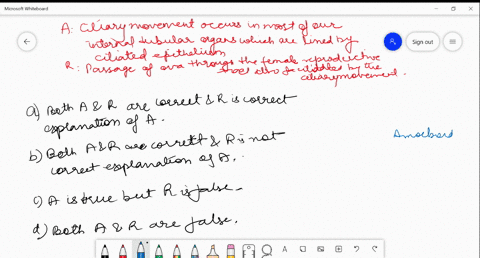 Microsoft Whiteboard
Sign out
A: Ciliary movement occurs in most of our
internal tubular organs which are lined by
ciliated epithelium
R: Passage of ova through the female reproductive
tract also facilitated by the
ciliary movement.
a) Both A & R are correct & R is correct
explanation of A.
b) Both A & R are correct & R is not
correct explanation of A.
c) A is true but R is false.
d) Both A & R are false.
Amoeboid